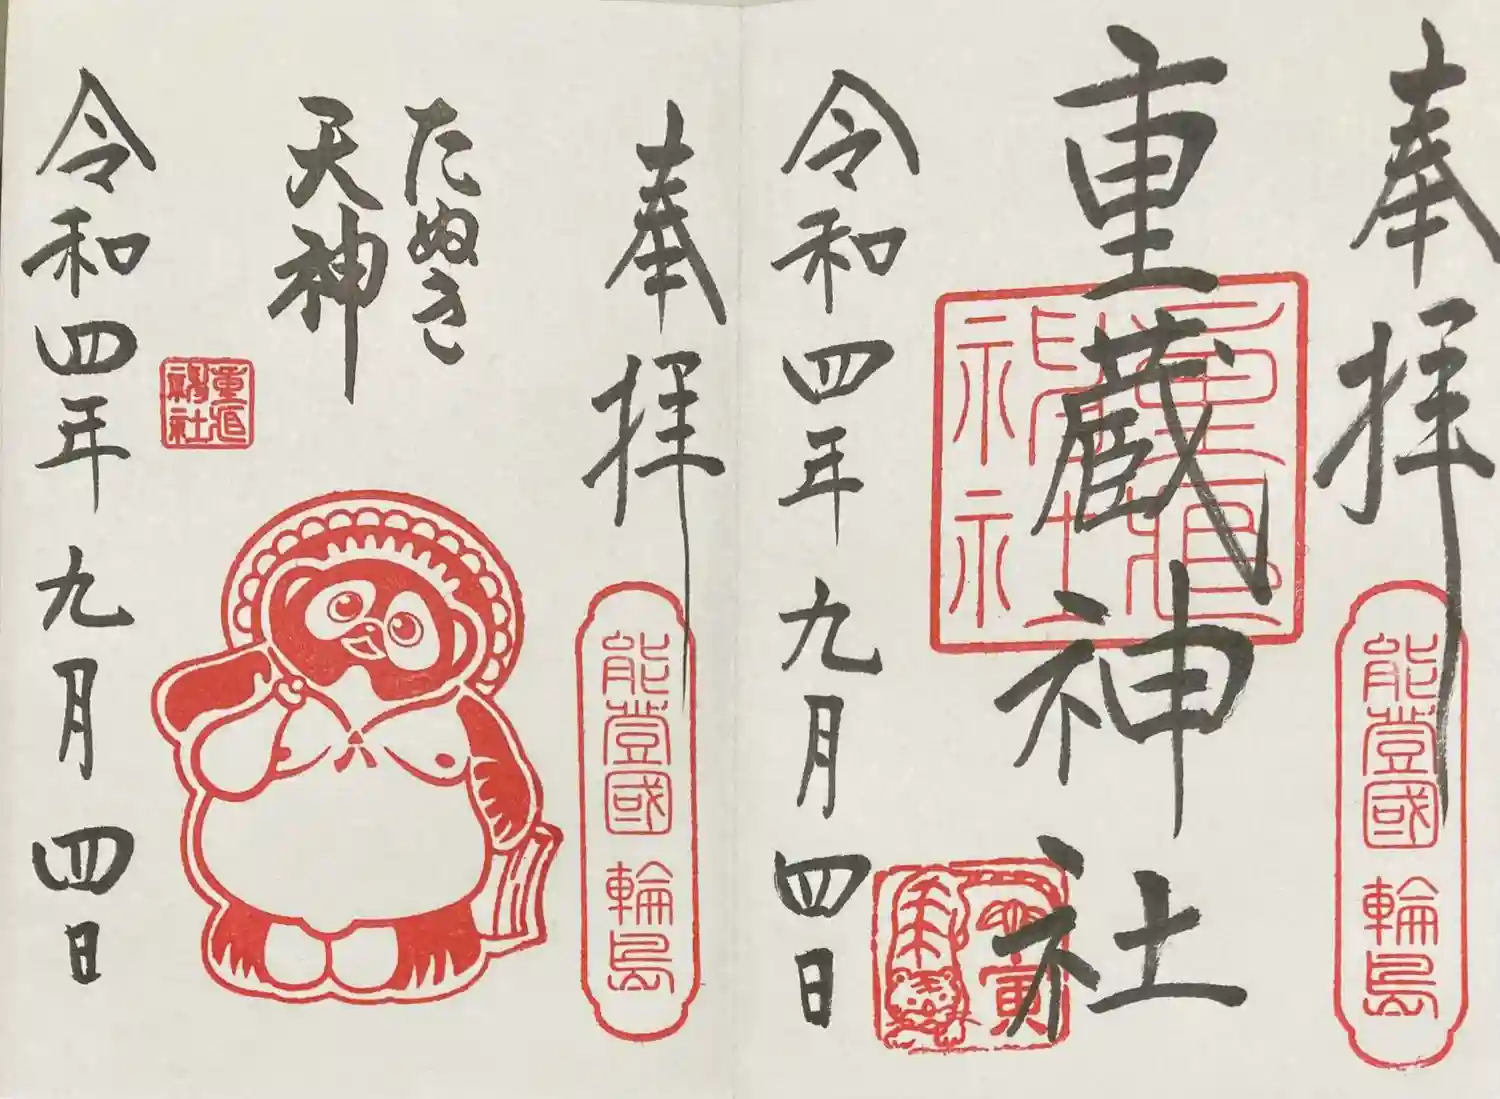 奉拝
能登國 輪島
重蔵神社
重蔵神社
寅
令和四年九月四日
奉拝
能登國 輪島
たぬき
天神
重蔵神社
令和四年九月四日